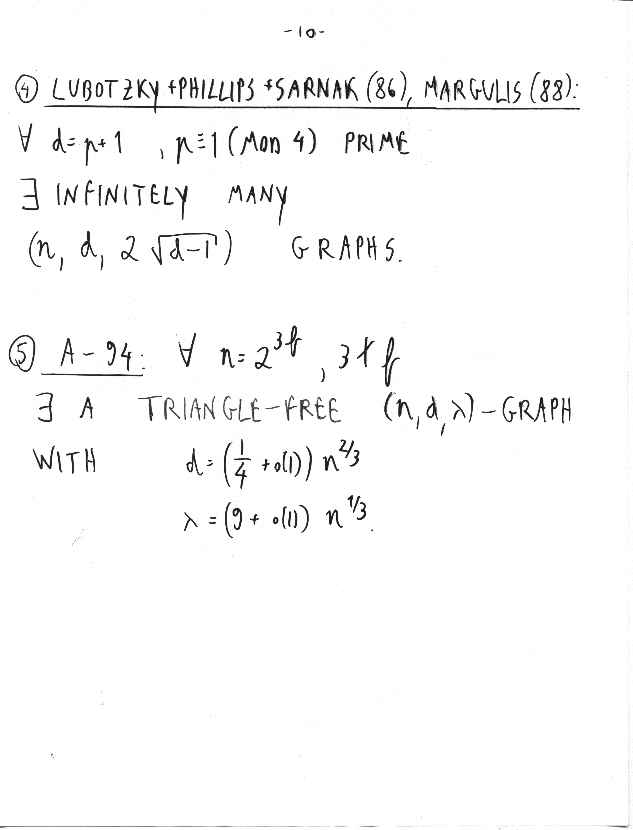 -10-
④ LUBOTZKY + PHILLIPS + SARNAK (86), MARGULIS (88):
∀ d = p+1 , p ≡ 1 (MOD 4) PRIME
∃ INFINITELY MANY
(n, d, 2 √(d-1)) GRAPHS.
⑤ A-94: ∀ n = 2^{3k}, 3∤k
∃ A TRIANGLE-FREE (n, d, λ)-GRAPH
WITH d = (1/4 + o(1)) n^{2/3}
λ = (9 + o(1)) n^{1/3}.